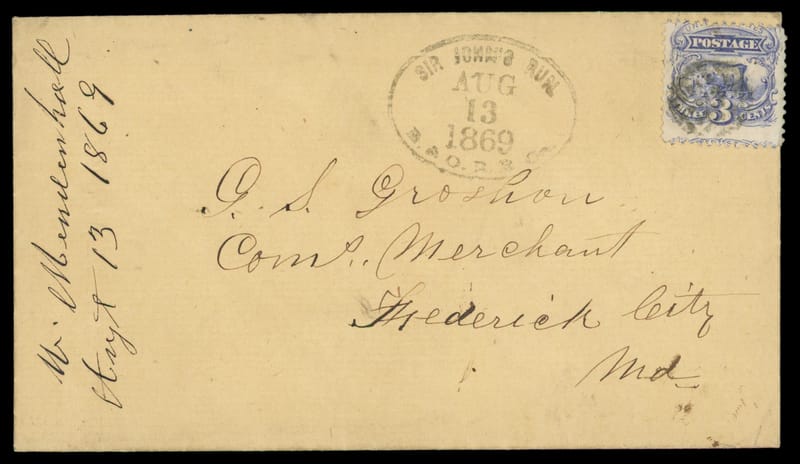 W. Mendenhall
Augt 13 1869
SIR JOHN'S RUN.
AUG
13
1869
B. & O. R. R. CO.
POSTAGE
3
CENTS
G. S. Groshon
Coms. Merchant
Frederick City
Md.